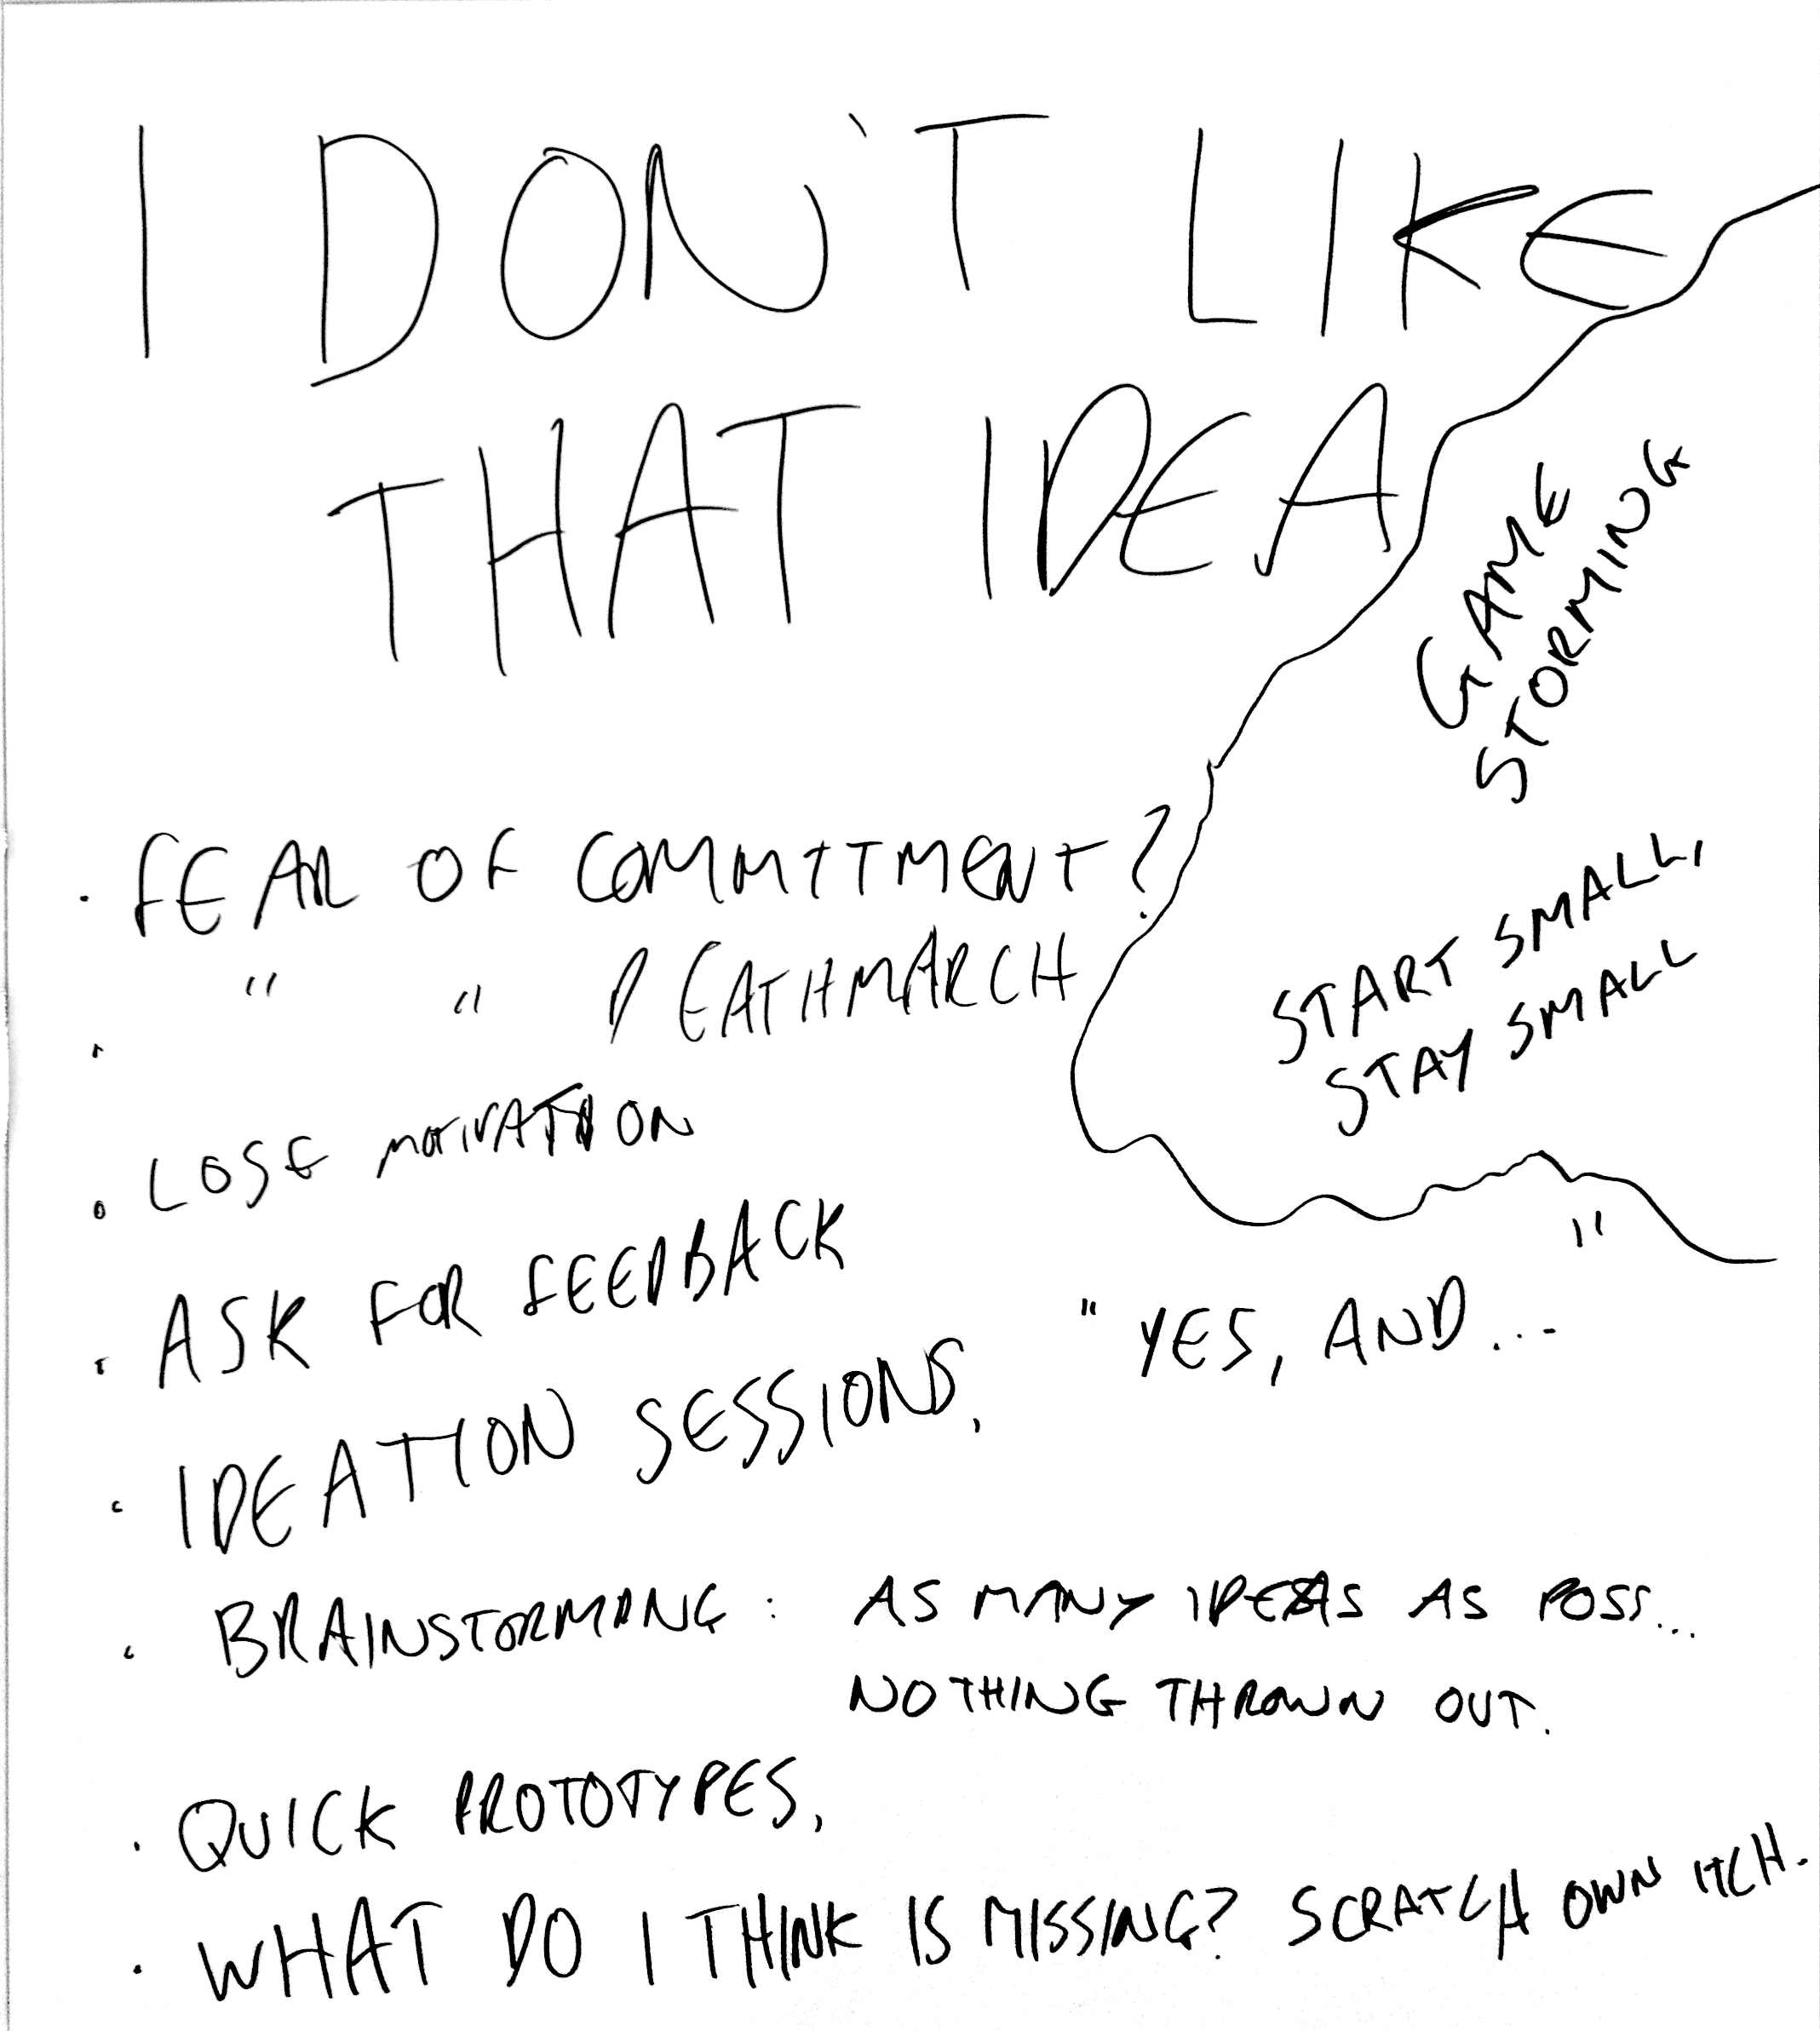 I DON'T LIKE
THAT IDEA
GAME
STORMING
START SMALL,
STAY SMALL
· FEAR OF COMMITTMENT?
· " " DEATHMARCH
· LOSE MOTIVATION
· ASK FOR FEEDBACK
· IDEATION SESSIONS. "YES, AND..."
· BRAINSTORMING: AS MANY IDEAS AS POSS...
NOTHING THROWN OUT.
· QUICK PROTOTYPES.
· WHAT DO I THINK IS MISSING? SCRATCH OWN ITCH.